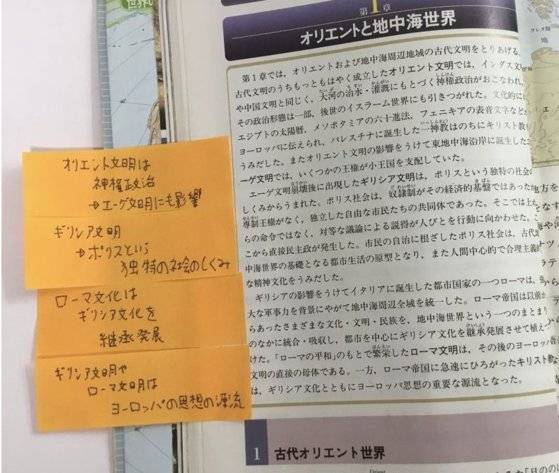 世界
第1章
オリエントと地中海世界
第1章では、オリエントおよび地中海周辺地域の古代文明をとりあげる。
古代文明のうちもっともはやく成立したオリエント文明では、インダス文
や中国文明と同じく、大河の治水・灌漑にもとづく神権政治がおこなわれ、
その政治形態は一部、後世のイスラーム世界にも引きつがれた。文化的に
エジプトの太陽暦、メソポタミアの六十進法、フェニキアの表音文字など
ヨーロッパに伝えられ、パレスチナに誕生した一神教はのちにキリスト教
うみだした。またオリエント文明の影響をうけて東地中海沿岸に誕生した
ーゲ文明では、いくつかの王権が小王国を支配していた。
エーゲ文明崩壊後に出現したギリシア文明は、ポリスという独特の社会の
しくみからうまれた。ポリス社会は、奴隷制がその経済的基盤ではあった
専制王権がなく、独立した自由な市民たちの共同体であった。そこでは上
らの命令ではなく、対等な議論による説得が人びとを行動に向かわせた。
こから直接民主政が発生した。市民の自治に根ざしたポリス社会は、古代
中海世界の基礎となる都市生活の原型となり、また人間中心的で合理主義
な精神文化をうみだした。
ギリシアの影響をうけてイタリアに誕生した都市国家の一つローマは、
大な軍事力を背景にやがて地中海周辺全域を統一した。ローマ帝国は以前
らあったさまざまな文化・文明・民族を、地中海世界という一つのまと
のなかに統合・吸収し、都市を中心にギリシア文化を継承発展させて植え
けた。「ローマの平和」のもとで繁栄したローマ文明は、その後のヨーロッパ
文明の直接の母体である。一方、ローマ帝国に急速にひろがったキリスト教
は、ギリシア文化とともにヨーロッパ思想の重要な源流となった。
1 古代オリエント世界
オリエント文明は
神権政治
→エーゲ文明にも影響
ギリシア文明
→ポリスという
独特の社会のしくみ
ローマ文化は
ギリシア文化を
継承発展
ギリシア文明や
ローマ文明は
ヨーロッパの思想の源流